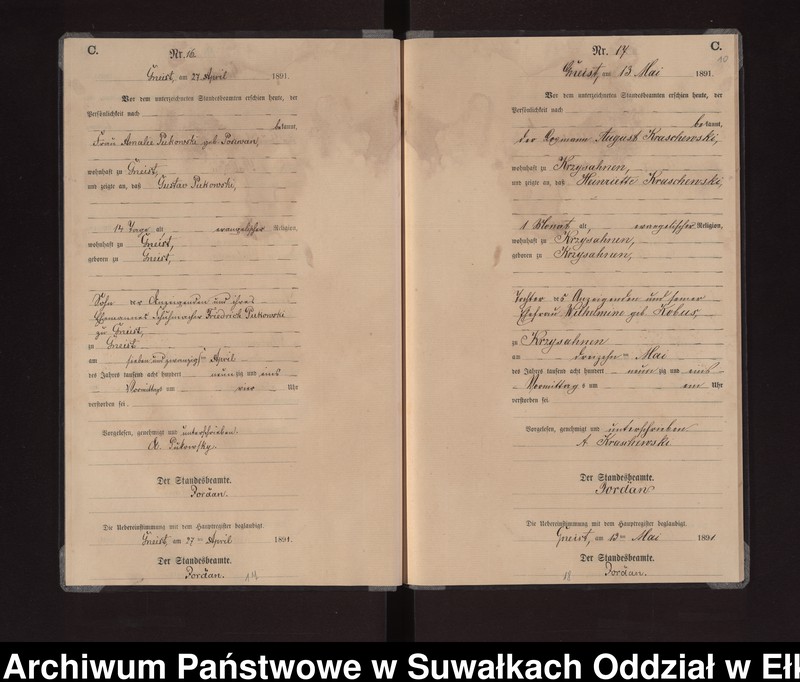 C.
Nr. 16.
Gneist, am 27. April 1891.
Vor dem unterzeichneten Standesbeamten erschien heute, der
Persönlichkeit nach
bekannt,
Frau Amalie Pukowski geb.
wohnhaft zu Gneist,
und zeigte an, daß Gustav Pukowski,
14 Tage alt, evangelischer Religion,
wohnhaft zu Gneist,
geboren zu Gneist,
Sohn der Anzeigenden und ihres
Ehemannes Friedrich Pukowski
zu Gneist,
zu Gneist
am sieben und zwanzigsten April
des Jahres tausend acht hundert neunzig und eins
Vormittags um vier Uhr
verstorben sei.
Vorgelesen, genehmigt und unterschrieben.
A. Pukowsky.
Der Standesbeamte.
Jordan.
Die Uebereinstimmung mit dem Hauptregister beglaubigt.
Gneist, am 27ten April 1891.
Der Standesbeamte.
Jordan.
C.
Nr. 17.
Gneist, am 13. Mai 1891.
Vor dem unterzeichneten Standesbeamten erschien heute, der
Persönlichkeit nach
bekannt,
der August Kraschewski,
wohnhaft zu Krzysahnen,
und zeigte an, daß Heinriette Kraschewski,
1 Monat alt, evangelischer Religion,
wohnhaft zu Krzysahnen,
geboren zu Krzysahnen,
Tochter des Anzeigenden und seiner
Ehefrau Wilhelmine geb. Kobus,
zu Krzysahnen
am dreizehnten Mai
des Jahres tausend acht hundert neunzig und eins
Vormittags um ein Uhr
verstorben sei.
Vorgelesen, genehmigt und unterschrieben
A. Kraschewski
Der Standesbeamte.
Jordan
Die Uebereinstimmung mit dem Hauptregister beglaubigt.
Gneist, am 13ten Mai 1891
Der Standesbeamte.
Jordan.
Archiwum Państwowe w Suwałkach Oddział w Ełk